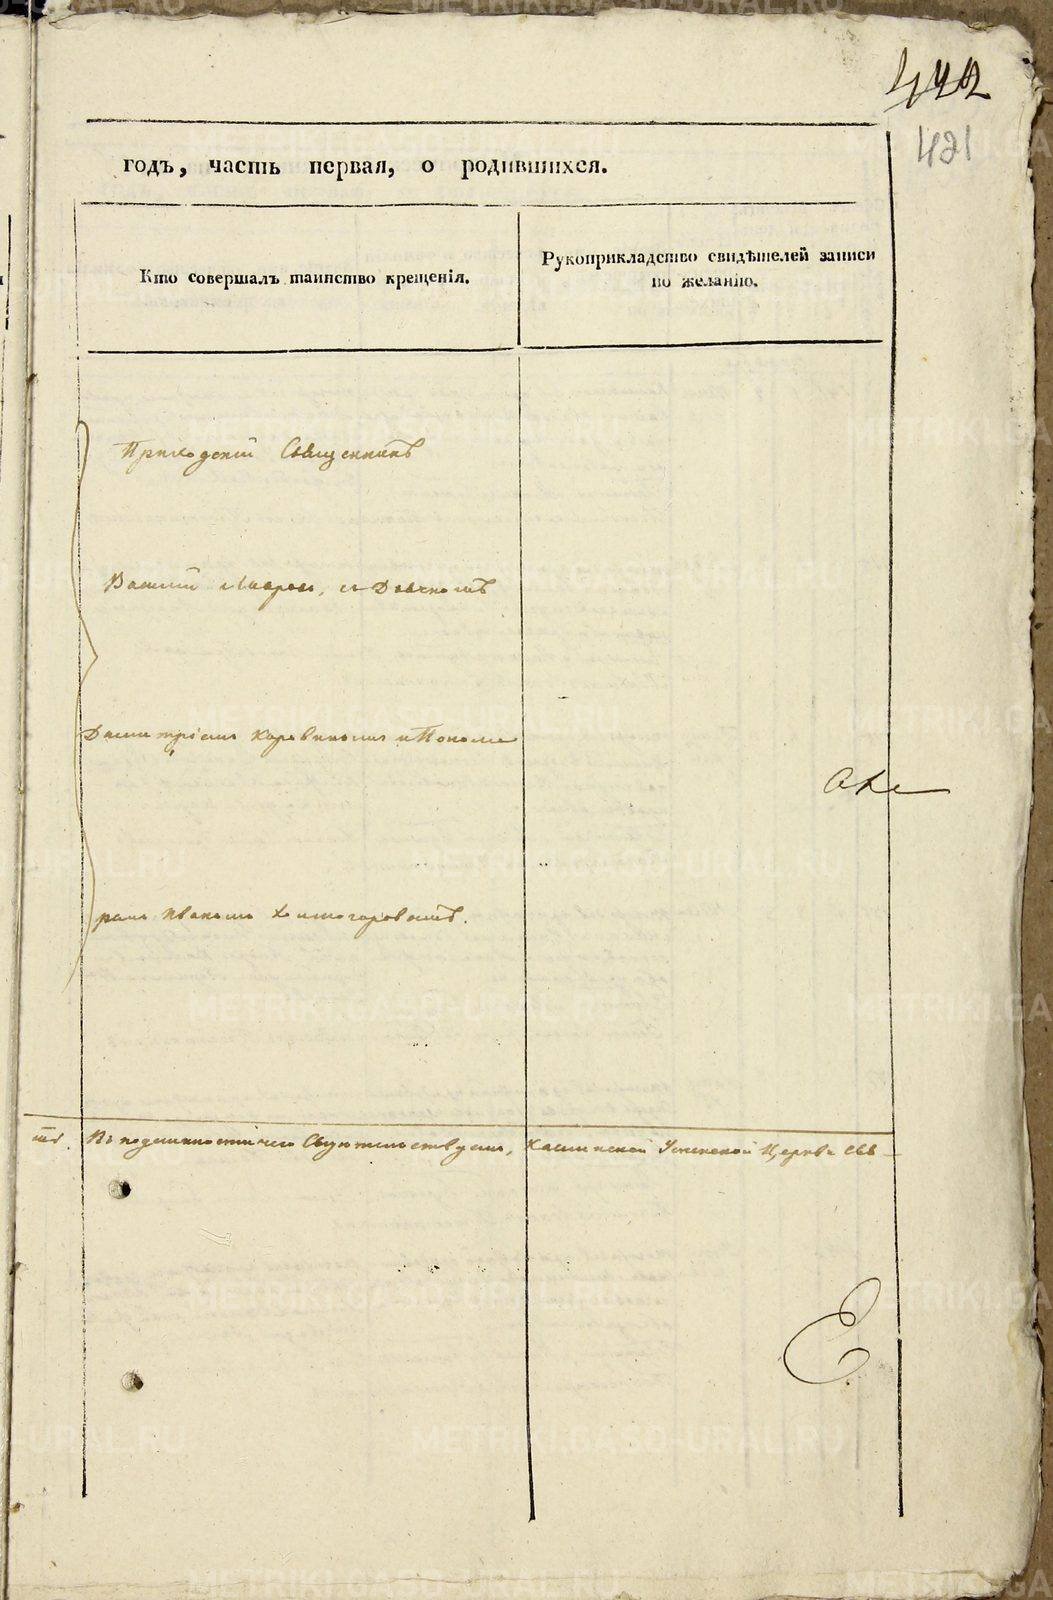 442
421
годъ, часть первая, о родившихся.
Кто совершалъ таинство крещенія.
Рукоприкладство свидѣтелей записи
по желанію.
Приходскій Священникъ
Василій съ Дьячкомъ
Димитріемъ Коровинымъ и Пономо
ремъ Иваномъ Холмогоровымъ.
Въ подлинности чего Свидѣтельствуемъ, Успенской Церкви Свя
METRIKI.GASO-URAL.RU